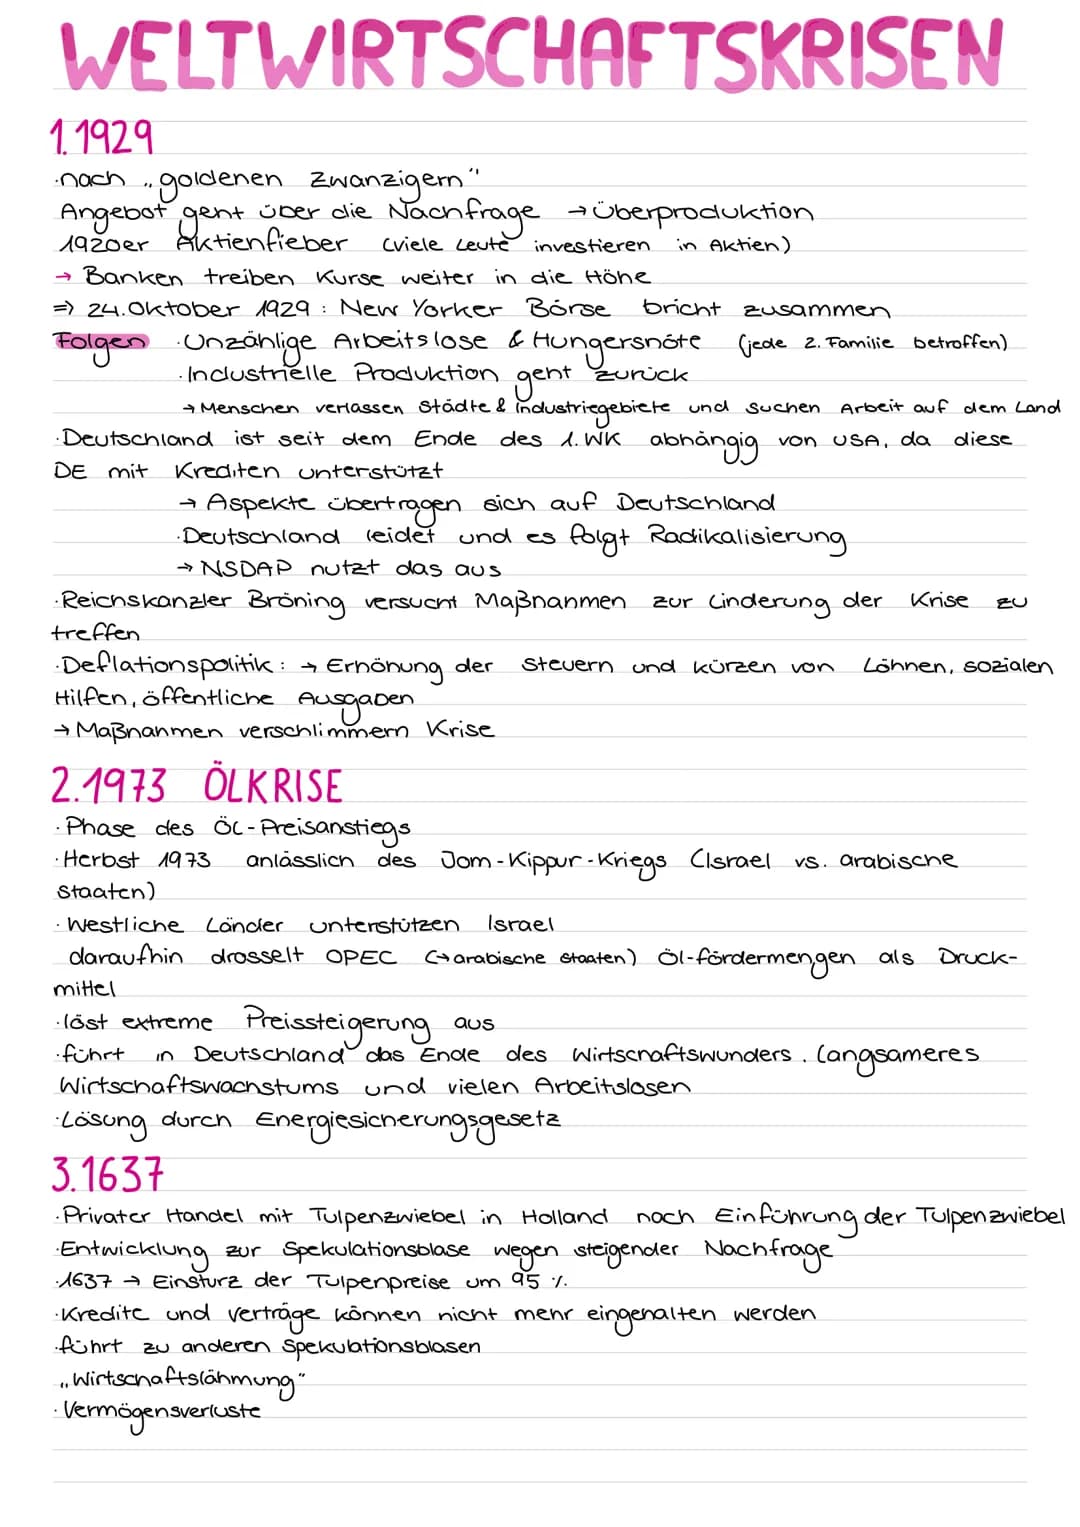 WELTWIRTSCHAFTSKRISEN
1.1929
·nach „goldenen Zwanzigern"
Angebot geht über die Nachfrage → Überproduktion
1920er Aktienfieber (viele Leute investieren in Aktien)
→ Banken treiben Kurse weiter in die Höhe
⇒ 24.Oktober 1929 : New Yorker Börse bricht zusammen
Folgen ·Unzählige Arbeitslose & Hungersnöte (jede 2. Familie betroffen)
·Industrielle Produktion geht zurück
→ Menschen verlassen Städte & Industriegebiete und suchen Arbeit auf dem Land
·Deutschland ist seit dem Ende des 1. WK abhängig von USA, da diese
DE mit Krediten unterstützt
→ Aspekte übertragen sich auf Deutschland
·Deutschland leidet und es folgt Radikalisierung
→ NSDAP nutzt das aus
·Reichskanzler Brüning versucht Maßnahmen zur Linderung der Krise zu
treffen
·Deflationspolitik : → Erhöhung der Steuern und kürzen von Löhnen, sozialen
Hilfen, öffentliche Ausgaben
→ Maßnahmen verschlimmern Krise
2.1973 ÖLKRISE
· Phase des Öl-Preisanstiegs
·Herbst 1973 anlässlich des Jom-Kippur-Kriegs (Israel vs. arabische
Staaten)
· Westliche Länder unterstützen Israel
daraufhin drosselt OPEC (→ arabische Staaten) Öl-fördermengen als Druck-
mittel
·löst extreme Preissteigerung aus
·führt in Deutschland das Ende des Wirtschaftswunders . langsameres
Wirtschaftswachstums und vielen Arbeitslosen
·Lösung durch Energiesicherungsgesetz
3.1637
·Privater Handel mit Tulpenzwiebel in Holland nach Einführung der Tulpenzwiebel
·Entwicklung zur Spekulationsblase wegen steigender Nachfrage
·1637 → Einsturz der Tulpenpreise um 95 %.
·Kredite und verträge können nicht mehr eingehalten werden
·führt zu anderen Spekulationsblasen
„Wirtschaftslähmung"
· Vermögensverluste